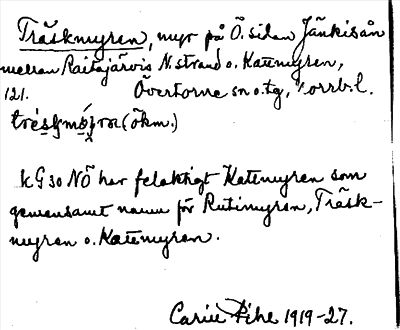 Träskmyren, myr på Ö. sidan Jänkisån
mellan Raitajärvis N. strand o. Katemyren,
121. Övertorne sn o. tg, Norrb. l.
(ökm.)
kG 30 NÖ har felaktigt Katemyren som
gemensamt namn för Rutimyran, Träsk-
myren o. Katemyran.
Carin Pihl 1919-27.